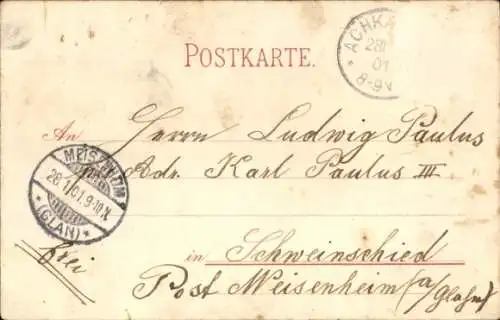 POSTKARTE.
ACHKA
28
01
8-9V
An Herrn Ludwig Paulus
Adr. Karl Paulus III
MEISENHEIM
28.1/01.9-10.V.
*(GLAN)*
in Schweinschied
frei
Post Meisenheim (a/Glahn)